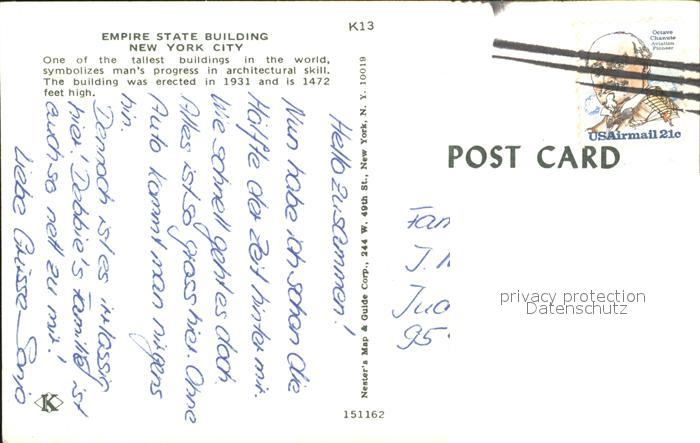 K13
EMPIRE STATE BUILDING
NEW YORK CITY
One of the tallest buildings in the world,
symbolizes man's progress in architectural skill.
The building was erected in 1931 and is 1472
feet high.
Hello zusammen!
Nun habe ich schon die
Hälfte der Zeit hinter mir.
Wie schnell geht es doch.
Alles ist so gross hier. Ohne
Auto kommt man nirgens
hin.
Dennoch ist es irrlässig
hier! Debbie's Familie ist
auch so nett zu mir!
Liebe Grüsse Sonja
K
Nester's Map & Guide Corp., 244 W. 49th St., New York, N. Y. 10019
151162
Octave
Chanute
Aviation
Pioneer
USAirmail 21c
POST CARD
Fam
J.
95
privacy protection
Datenschutz